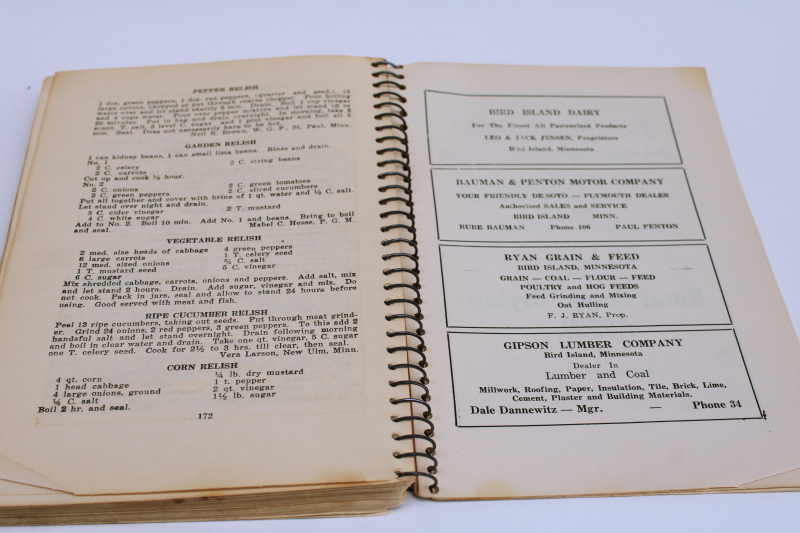 PEPPER RELISH
1 doz. green peppers, 1 doz. red peppers, (quarter and seed,) 15
large onions, chopped or put through coarse chopper. Pour boiling
water over and let stand exactly 5 min. Drain. Boil 1 cup vinegar
and 4 cups water. Pour over pepper mixture and let stand 10 or
20 minutes. Put in bag and drain overnight. In morning, take 3
want. T. salt, 3 level C. sugar and 1 pint vinegar and boil all 5
min. Seal. Does not necessarily have to be hot.
Nell R. Brown, W. G. P., St. Paul, Minn.
GARDEN RELISH
1 can kidney beans, 1 can small lima beans. Rinse and drain.
No. 1
2 C. string beans
2 C. celery
2 C. carrots
Cut up and cook ½ hour.
No. 2
2 C. green tomatoes
2 C. onions
2 C. sliced cucumbers
2 C. green peppers
Put all together and cover with brine of 1 qt. water and ½ C. salt.
Let stand over night and drain.
2 T. mustard
3 C. cider vinegar
4 C. white sugar
Add to No. 2. Boil 10 min. Add No. 1 and beans. Bring to boil
and seal.
Mabel C. Hesse, P. G. M.
VEGETABLE RELISH
2 med. size heads of cabbage
4 green peppers
8 large carrots
1 T. celery seed
12 med. sized onions
¾ C. salt
1 T. mustard seed
5 C. vinegar
6 C. sugar
Mix shredded cabbage, carrots, onions and peppers. Add salt, mix
and let stand 2 hours. Drain. Add sugar, vinegar and mix. Do
not cook. Pack in jars, seal and allow to stand 24 hours before
using. Good served with meat and fish.
RIPE CUCUMBER RELISH
Peel 13 ripe cucumbers, taking out seeds. Put through meat grind-
er. Grind 24 onions, 2 red peppers, 3 green peppers. To this add 2
handsful salt and let stand overnight. Drain following morning
and boil in clear water and drain. Take one qt. vinegar, 5 C. sugar
one T. celery seed. Cook for 2½ to 3 hrs. till clear, then seal.
Vera Larson, New Ulm, Minn.
CORN RELISH
4 qt. corn
¼ lb. dry mustard
1 head cabbage
1 t. pepper
4 large onions, ground
2 qt. vinegar
½ C. salt
1½ lb. sugar
Boil 2 hr. and seal.
172
BIRD ISLAND DAIRY
For The Finest All Pasteurized Products
LEO & JACK JENSEN, Proprietors
Bird Island, Minnesota
BAUMAN & PENTON MOTOR COMPANY
YOUR FRIENDLY DE SOTO — PLYMOUTH DEALER
Authorized SALES and SERVICE
BIRD ISLAND MINN.
RUBE BAUMAN Phone 106 PAUL PENTON
RYAN GRAIN & FEED
BIRD ISLAND, MINNESOTA
GRAIN — COAL — FLOUR — FEED
POULTRY and HOG FEEDS
Feed Grinding and Mixing
Oat Hulling
F. J. RYAN, Prop.
GIPSON LUMBER COMPANY
Bird Island, Minnesota
Dealer In
Lumber and Coal
Millwork, Roofing, Paper, Insulation, Tile, Brick, Lime,
Cement, Plaster and Building Materials.
Dale Dannewitz — Mgr. — Phone 34